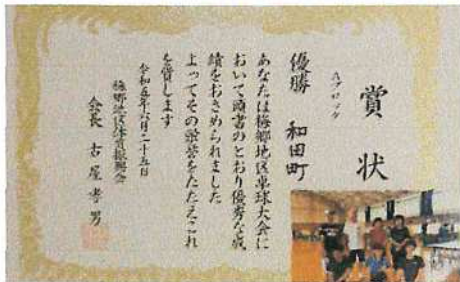 賞状
Aブロック
優勝 和田町
あなたは梅郷地区卓球大会に
おいて頭書のとおり優秀な成
績をおさめられました
よってその栄誉をたたえこれ
を賞します
令和五年六月二十五日
梅郷地区体育振興会
会長 古屋孝男